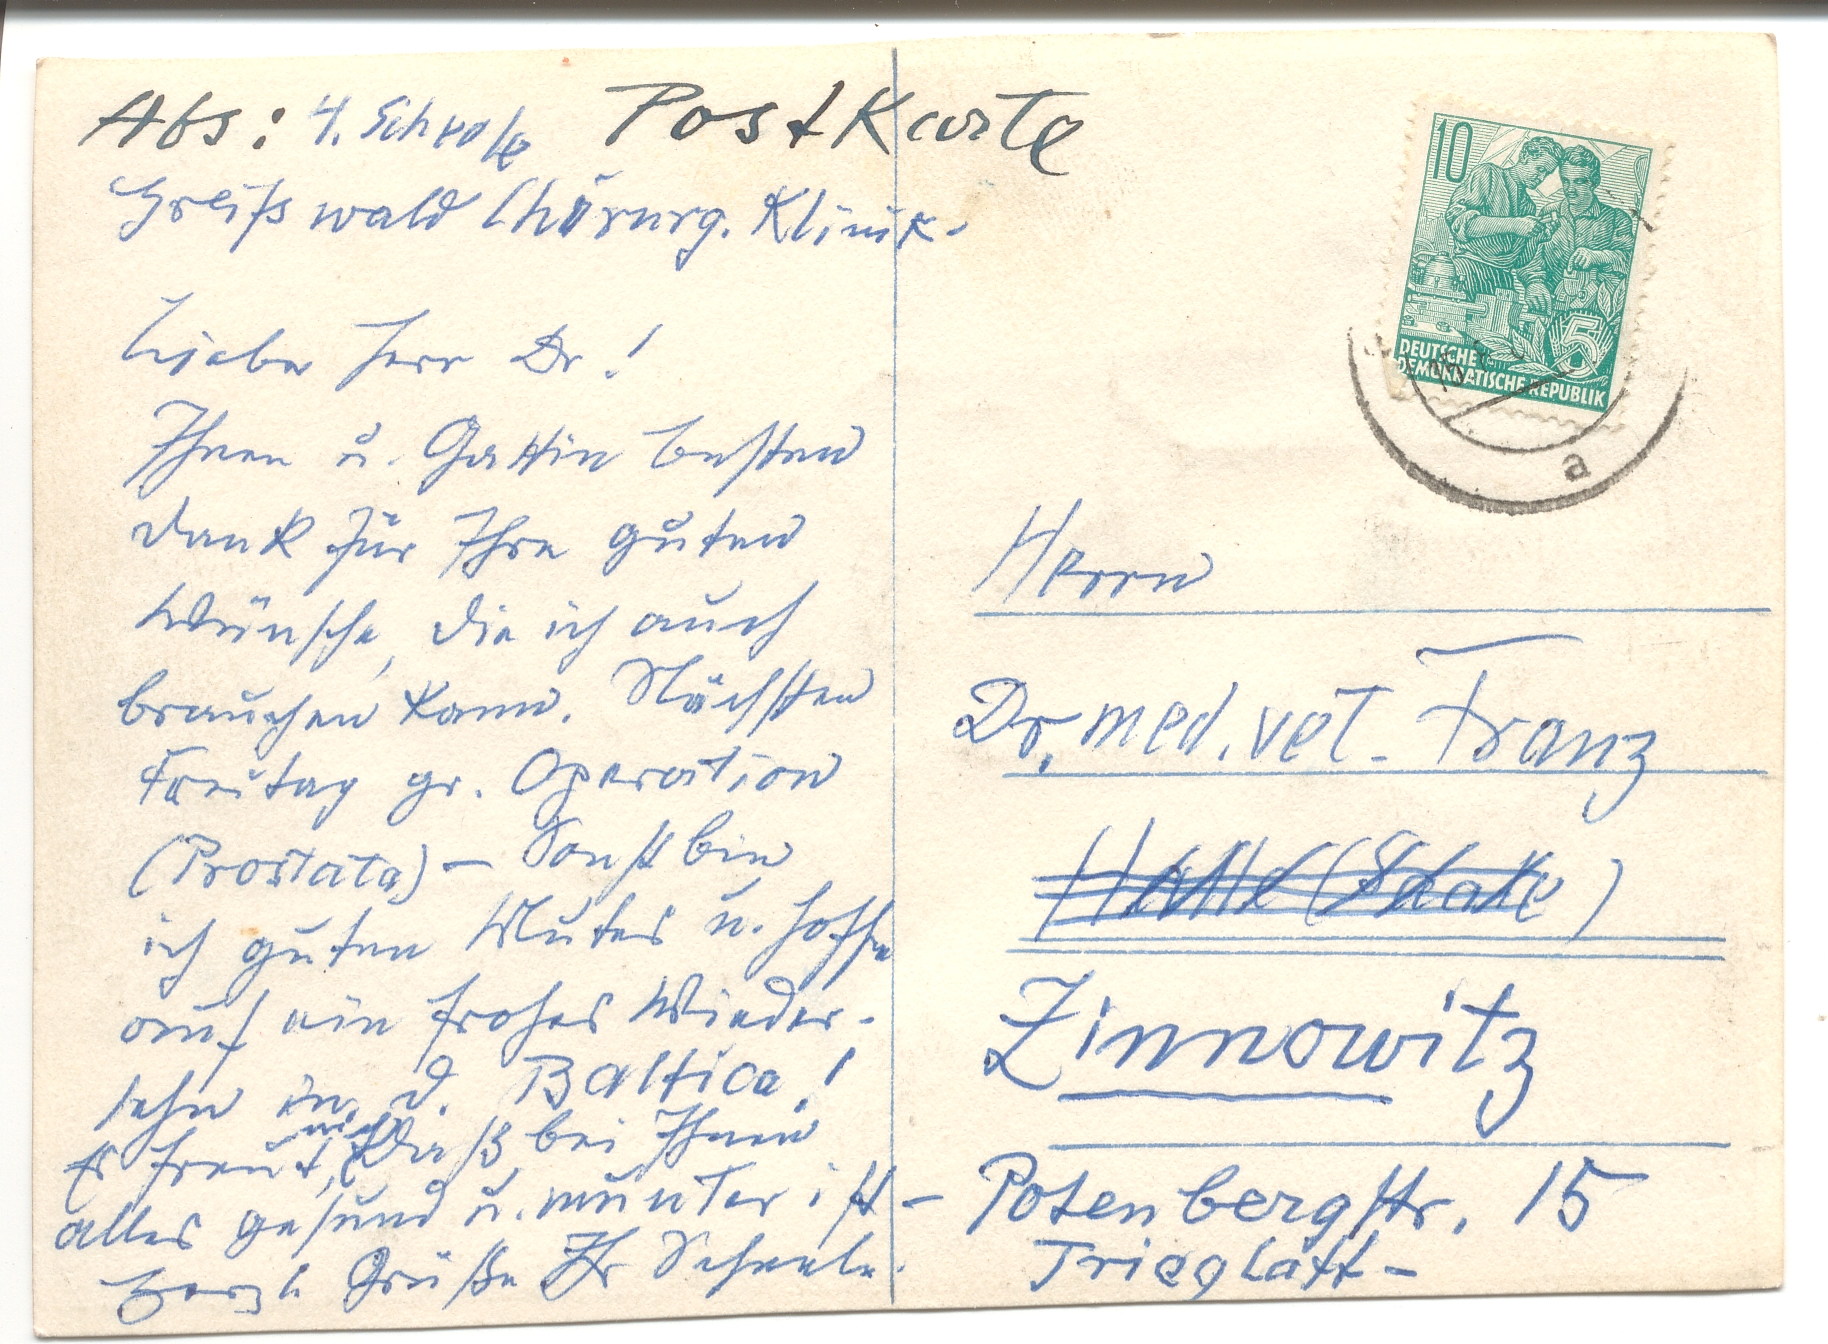 Abs: H. Scheele Postkarte
Greifswald Chirurg. Klinik.
Lieber Herr Dr!
Ihnen u. Gattin besten
Dank für Ihre guten
Wünsche, die ich auch
brauchen kann. Nächsten
Freitag gr. Operation
(Prostata) – Sonst bin
ich guten Mutes u. hoffe
auf ein frohes Wieder-
sehn in d. Baltica!
Es freut mich, daß bei Ihnen
alles gesund u. munter ist –
Herzl. Grüße Ihr Scheele.
10
5
DEUTSCHE
DEMOKRATISCHE REPUBLIK
a
Herrn
Dr. med. vet. Franz
Halle (Saale)
Zinnowitz
Potenbergstr. 15